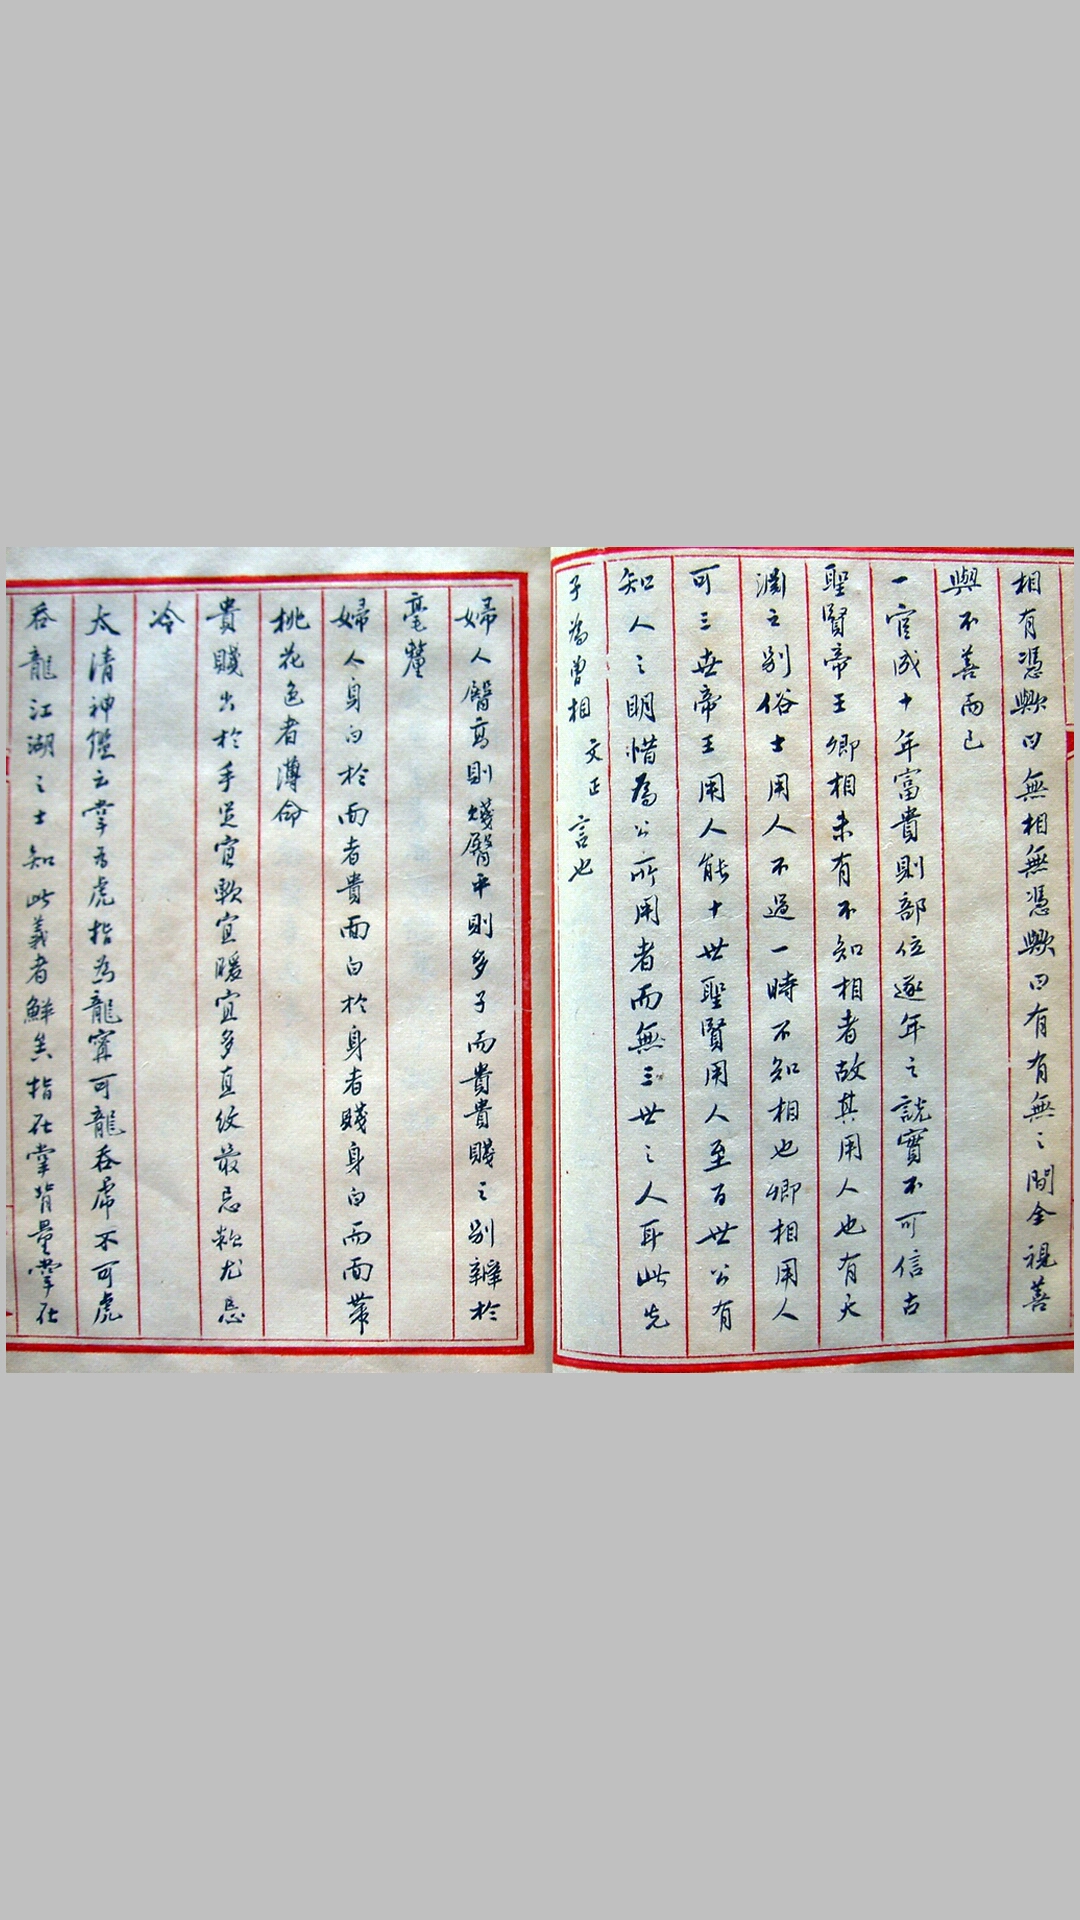 相有憑歟曰無相無憑歟曰有有無之間全視善
與不善而已
一官成十年富貴則部位逐年之說實不可信古
聖賢帝王卿相未有不知相者故其用人也有天
淵之別俗士用人不過一時不知相也卿相用人
可三世帝王用人能十世聖賢用人至百世公有
知人之明惜為公所用者而無三世之人耳此先
子為曾相文正言也
婦人臀高則賤臀平則多子而貴貴賤之別辨於
毫釐
婦人身白於面者貴面白於身者賤身白而面帶
桃花色者薄命
貴賤出於手足宜軟宜暖宜多直紋最忌粗尤忌
冷
太清神鑑云掌為虎指為龍寧可龍吞虎不可虎
吞龍江湖之士知此義者鮮矣指在掌背量掌在